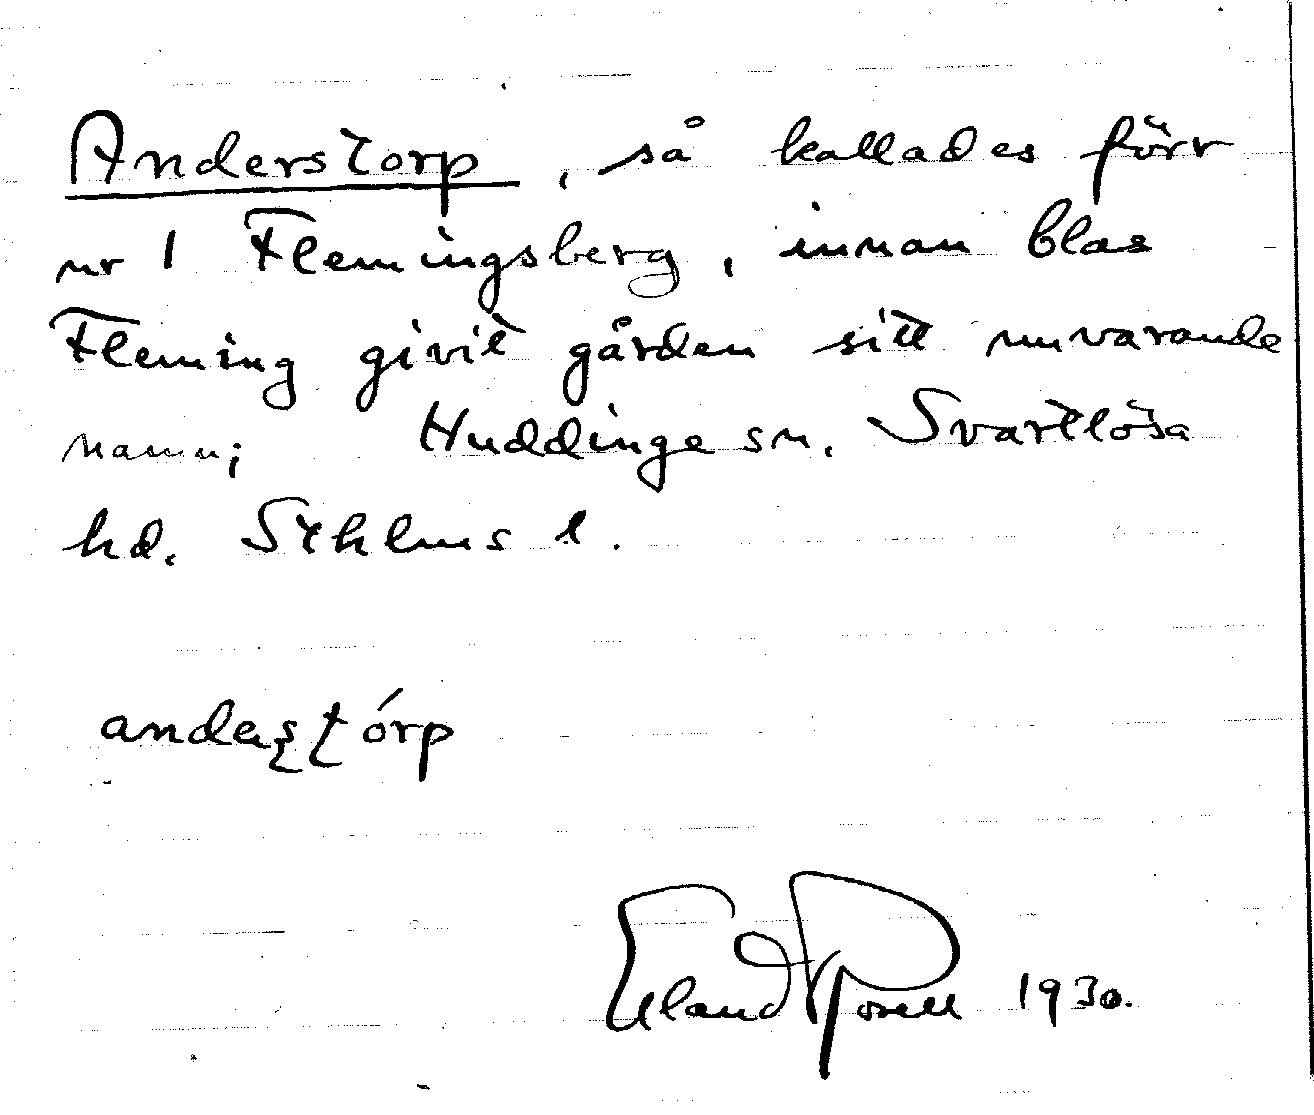 Anderstorp, så kallades förr
nr 1 Flemingsberg, innan Clas
Fleming givit gården sitt nuvarande
namn; Huddinge sn. Svartlösa
hd. Sthlms l.
andeʂʈórp
Erland Rosell 1930.